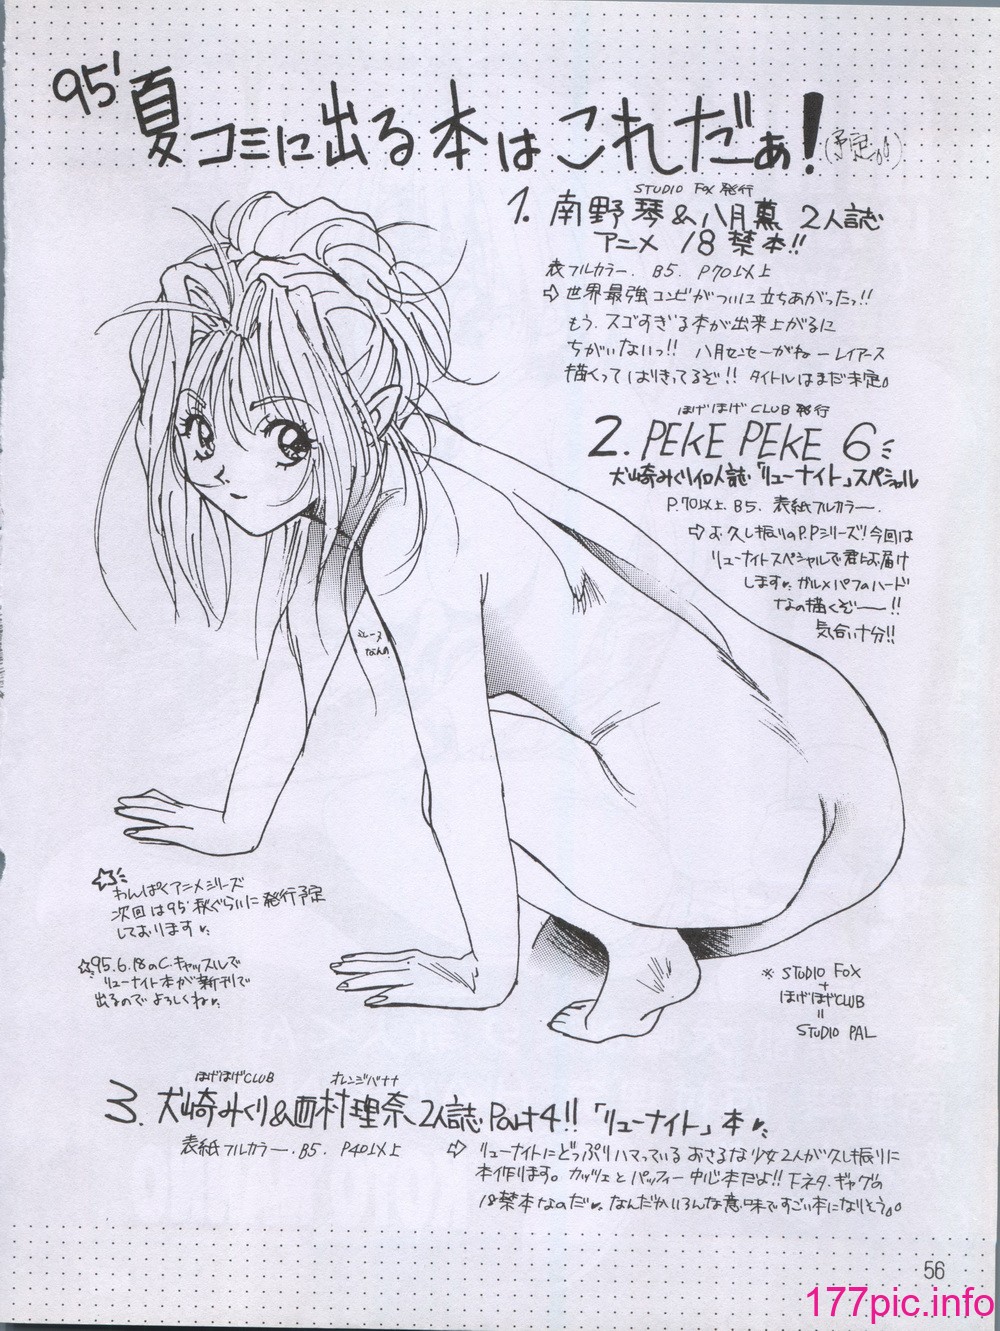 95' 夏コミに出る本はこれだぁ!(予定。。)
STUDIO FOX 発行
1. 南野琴&八月薫 2人誌
アニメ 18禁本!!
表フルカラー. B5. P70以上
⇨ 世界最強コンビがついに立ちあがったっ!!
もう、スゴすぎる本が出来上がるに
ちがいないっ!! 八月センセーがねーレイアース
描くってはりきってるぞ!! タイトルはまだ未定。
ほげほげCLUB発行
2. PEKE PEKE 6
犬崎みくり個人誌「リューナイト」スペシャル
P.70以上. B5. 表紙フルカラー.
⇨ お久し振りのP.Pシリーズ! 今回は
リューナイトスペシャルで君にお届け
します。ガルメパフのハード
なの描くぞー!!
気合い十分!!
ミレーヌ
なんの
☆わんぱくアニメシリーズ
次回は95'秋ぐらいに発行予定
しております。
☆95.6.18のC.キャッスルで
リューナイト本が新刊で
出るのでよろしくね。
※ STUDIO FOX
+
ほげほげCLUB
=
STUDIO PAL
ほげほげCLUB オレンジバナナ
3. 犬崎みくり&西村理奈 2人誌 Part4!! 「リューナイト」本
表紙フルカラー. B5. P40以上
⇨ リューナイトにどっぷりハマっているおさるな少女2人が久し振りに
本作ります。カッツェとパッフィー中心本だよ!! 下ネタ、ギャグの
18禁本なのだ。なんだかいろんな意味ですごい本になりそう。。
56
177pic.info